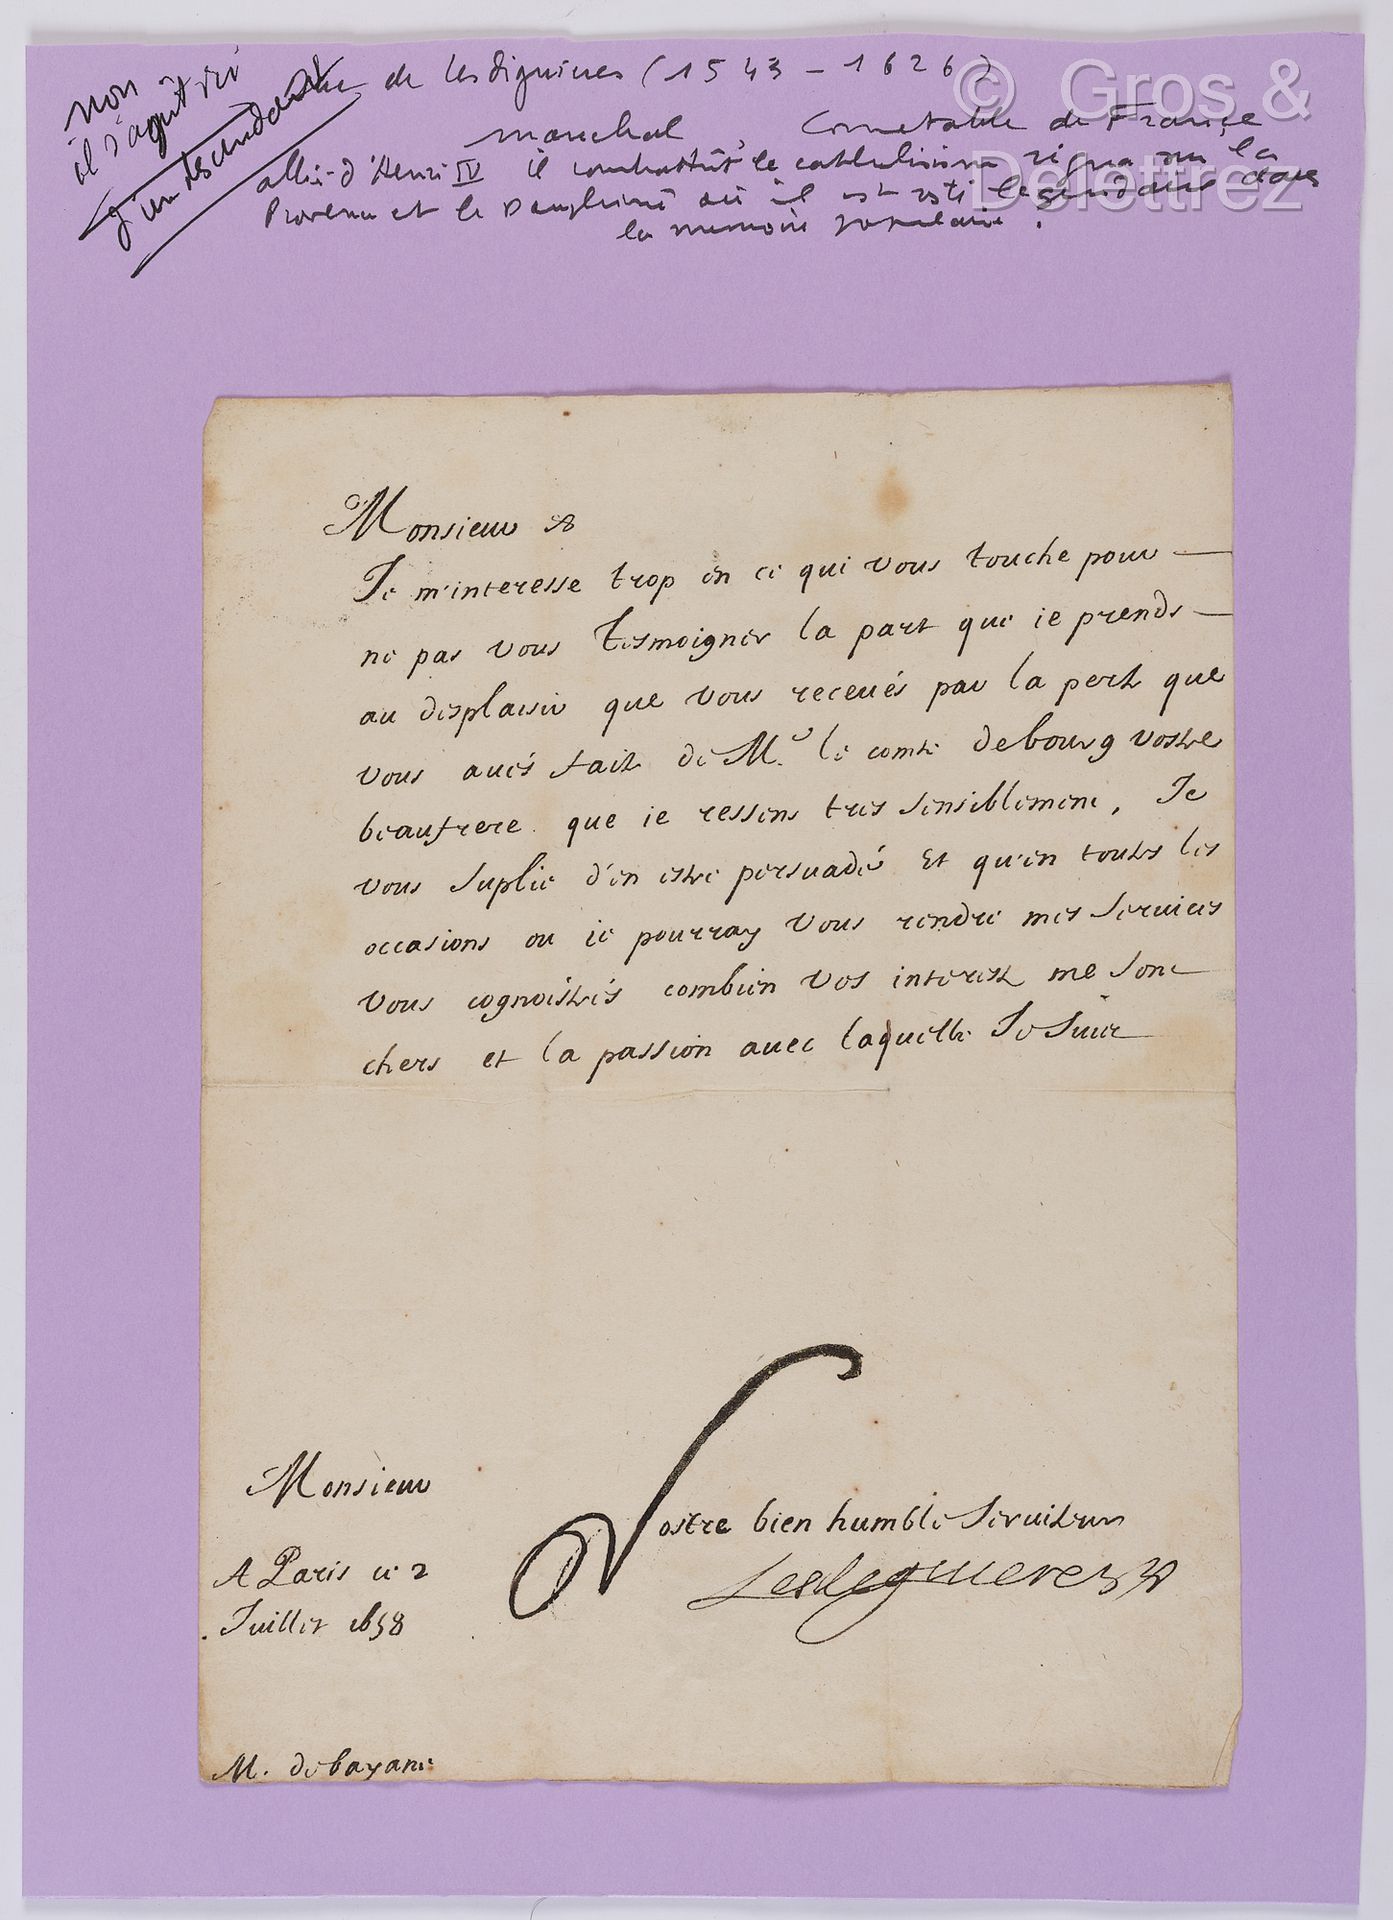 non
il s'agit ici
d'un descendant
duc de Lesdiguieres (1543 - 1626)
marechal, Connetable de France
allié d'Henri IV il combattit le catholicisme régna sur la
Provence et le Dauphiné où il est resté legendaire dans
la memoire populaire.
© Gros &
Delettrez
Monsieur
Je m'interesse trop en ce qui vous touche pour
ne pas vous tesmoigner la part que ie prends
au desplaisir que vous receués par la perte que
vous aués fait de Mr. le comte debourg vostre
beaufrere. que ie ressens tres sensiblement, Je
vous suplie d'en estre persuadé Et qu'en toutes les
occasions ou ie pourray vous rendre mes seruices
vous cognoistrés combien vos interest me sont
chers et la passion auec laquelle Je suis
Monsieur
Vostre bien humble seruiteur
Lesdiguieres
A Paris ce 2
Juillet 1658
M. de bayane